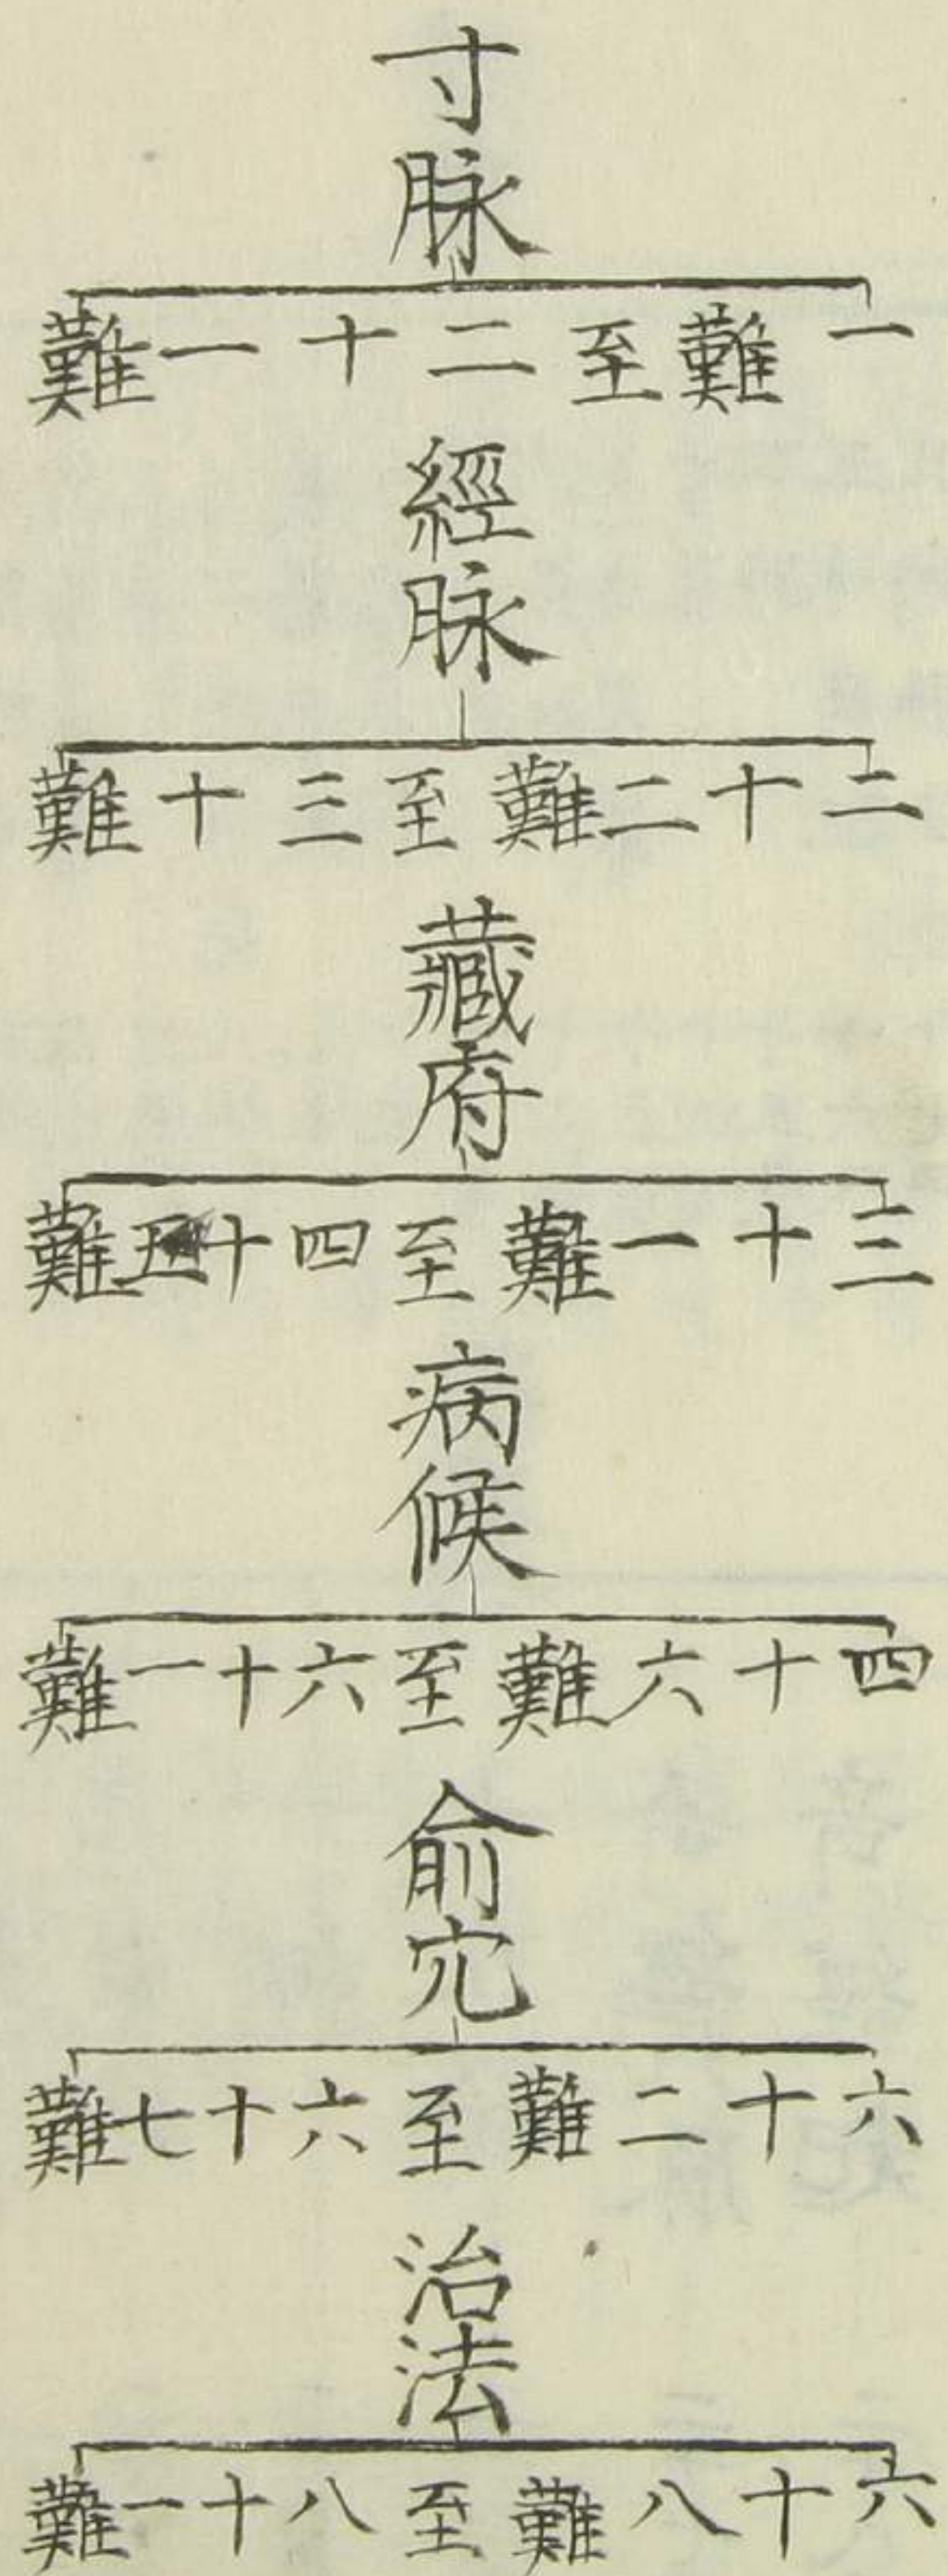 寸脉
一難至二十一難
經脉
二十二難至三十難
藏府
三十一難至四十五難
病候
四十六難至六十一難
俞穴
六十二難至六十七難
治法
六十八難至八十一難